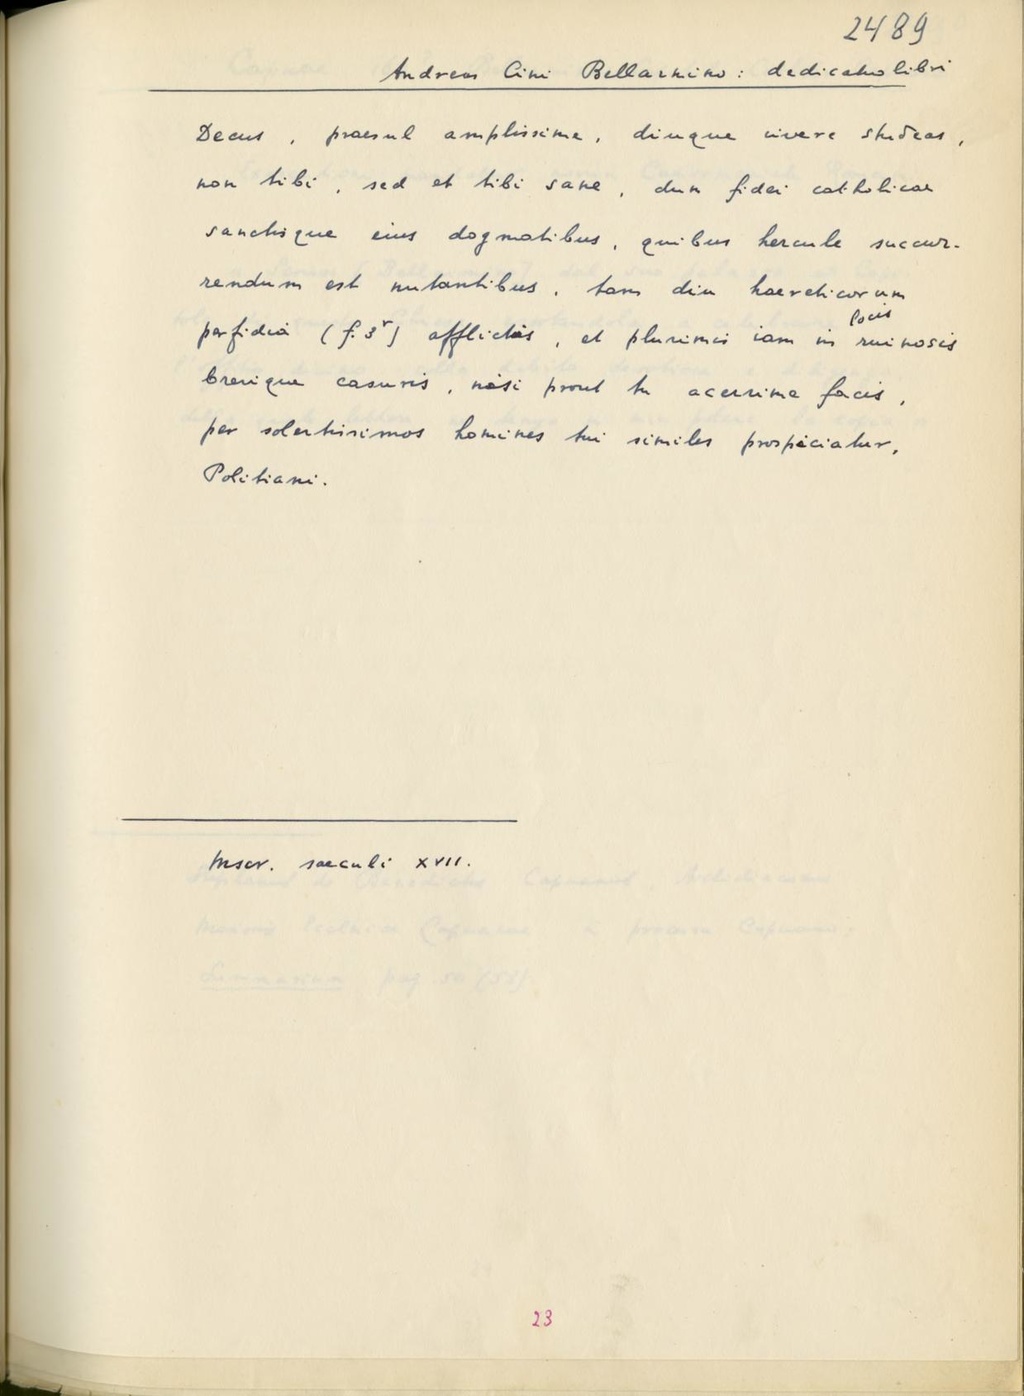 2489
Andreas Cini Bellarmino : dedicatio libri
Decus , praesul amplissime , diuque vivere studeas ,
non tibi , sed et tibi sane , dum fidei catholicae
sanctisque eius dogmatibus , quibus hercule succur-
rendum est nutantibus , tam diu haereticorum
perfidia ( f. 3r ) afflictis , et plurimis iam in locis ruinosis
brevique casuris , nisi prout tu acerrime facis ,
per solertissimos homines tui similes prospiciatur ,
Politiani .
Inscr. saeculi XVII .
23